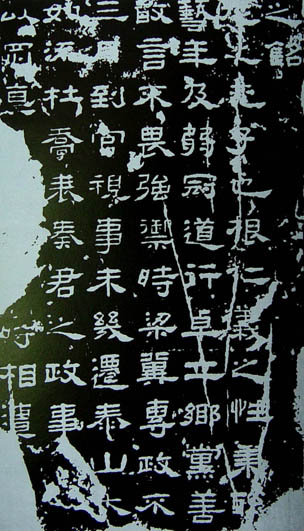 之銘
之長子也根仁義之性秉
藝年及弱冠道行卓立鄉黨善
敢言不畏強禦時梁冀專政不
三月到官視事未幾遷泰山太
如流杜喬表奏君之政事
山 真 時相遺